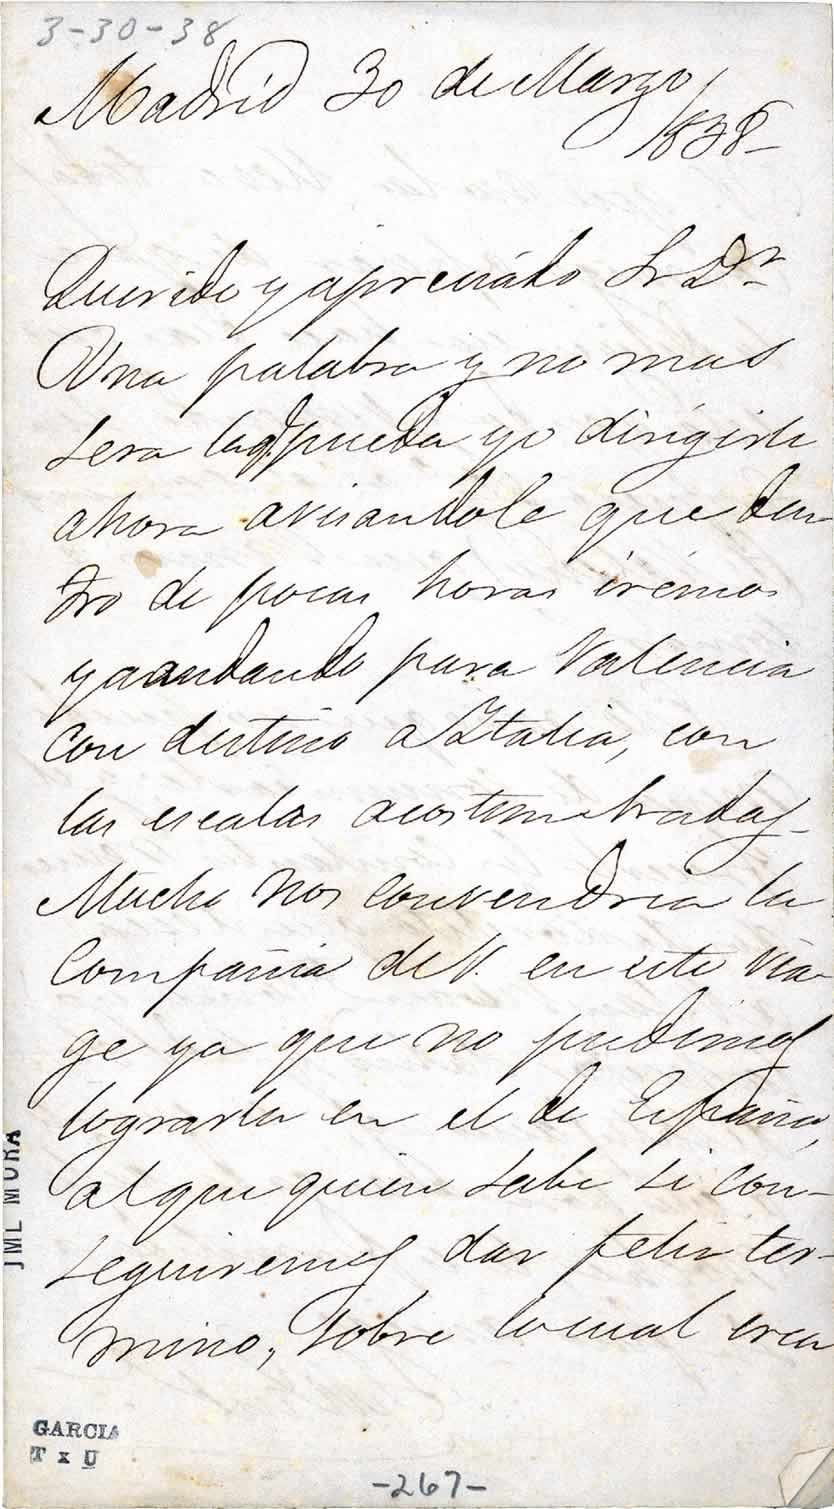 3-30-38
Madrid 30 de Marzo
1838-
Querido y apreciádo Sr Dr
Una palabra y no mas
sera laq. pueda yo dirigirle
ahora avisandole que den
tro de pocas horas irémos
ya andando para Valencia
con destino a Italia, con
las escalas acostumbradas-
Mucho nos convendria la
Compañia de V. en este via-
ge ya que no pudimos
lograrla en el de España,
al que quien sabe si con-
seguiremos dar feliz ter-
mino, sobre lo cual crea
JML MORA
GARCIA
T x U
-267-